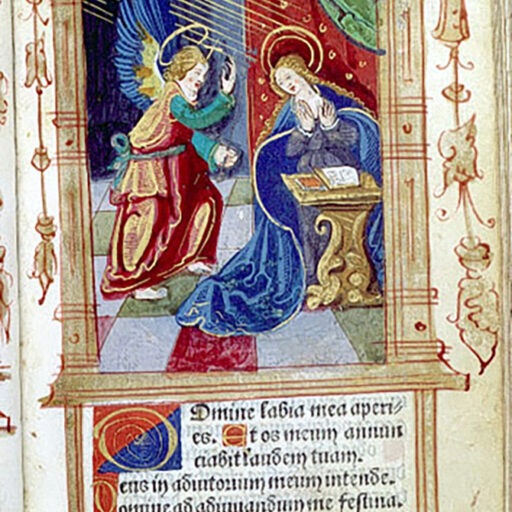 Domine labia mea aperi-
es. Et os meum annun
ciabit laudem tuam.
Deus in adiutorium meum intende.
Domine ad adiuuandum me festina.